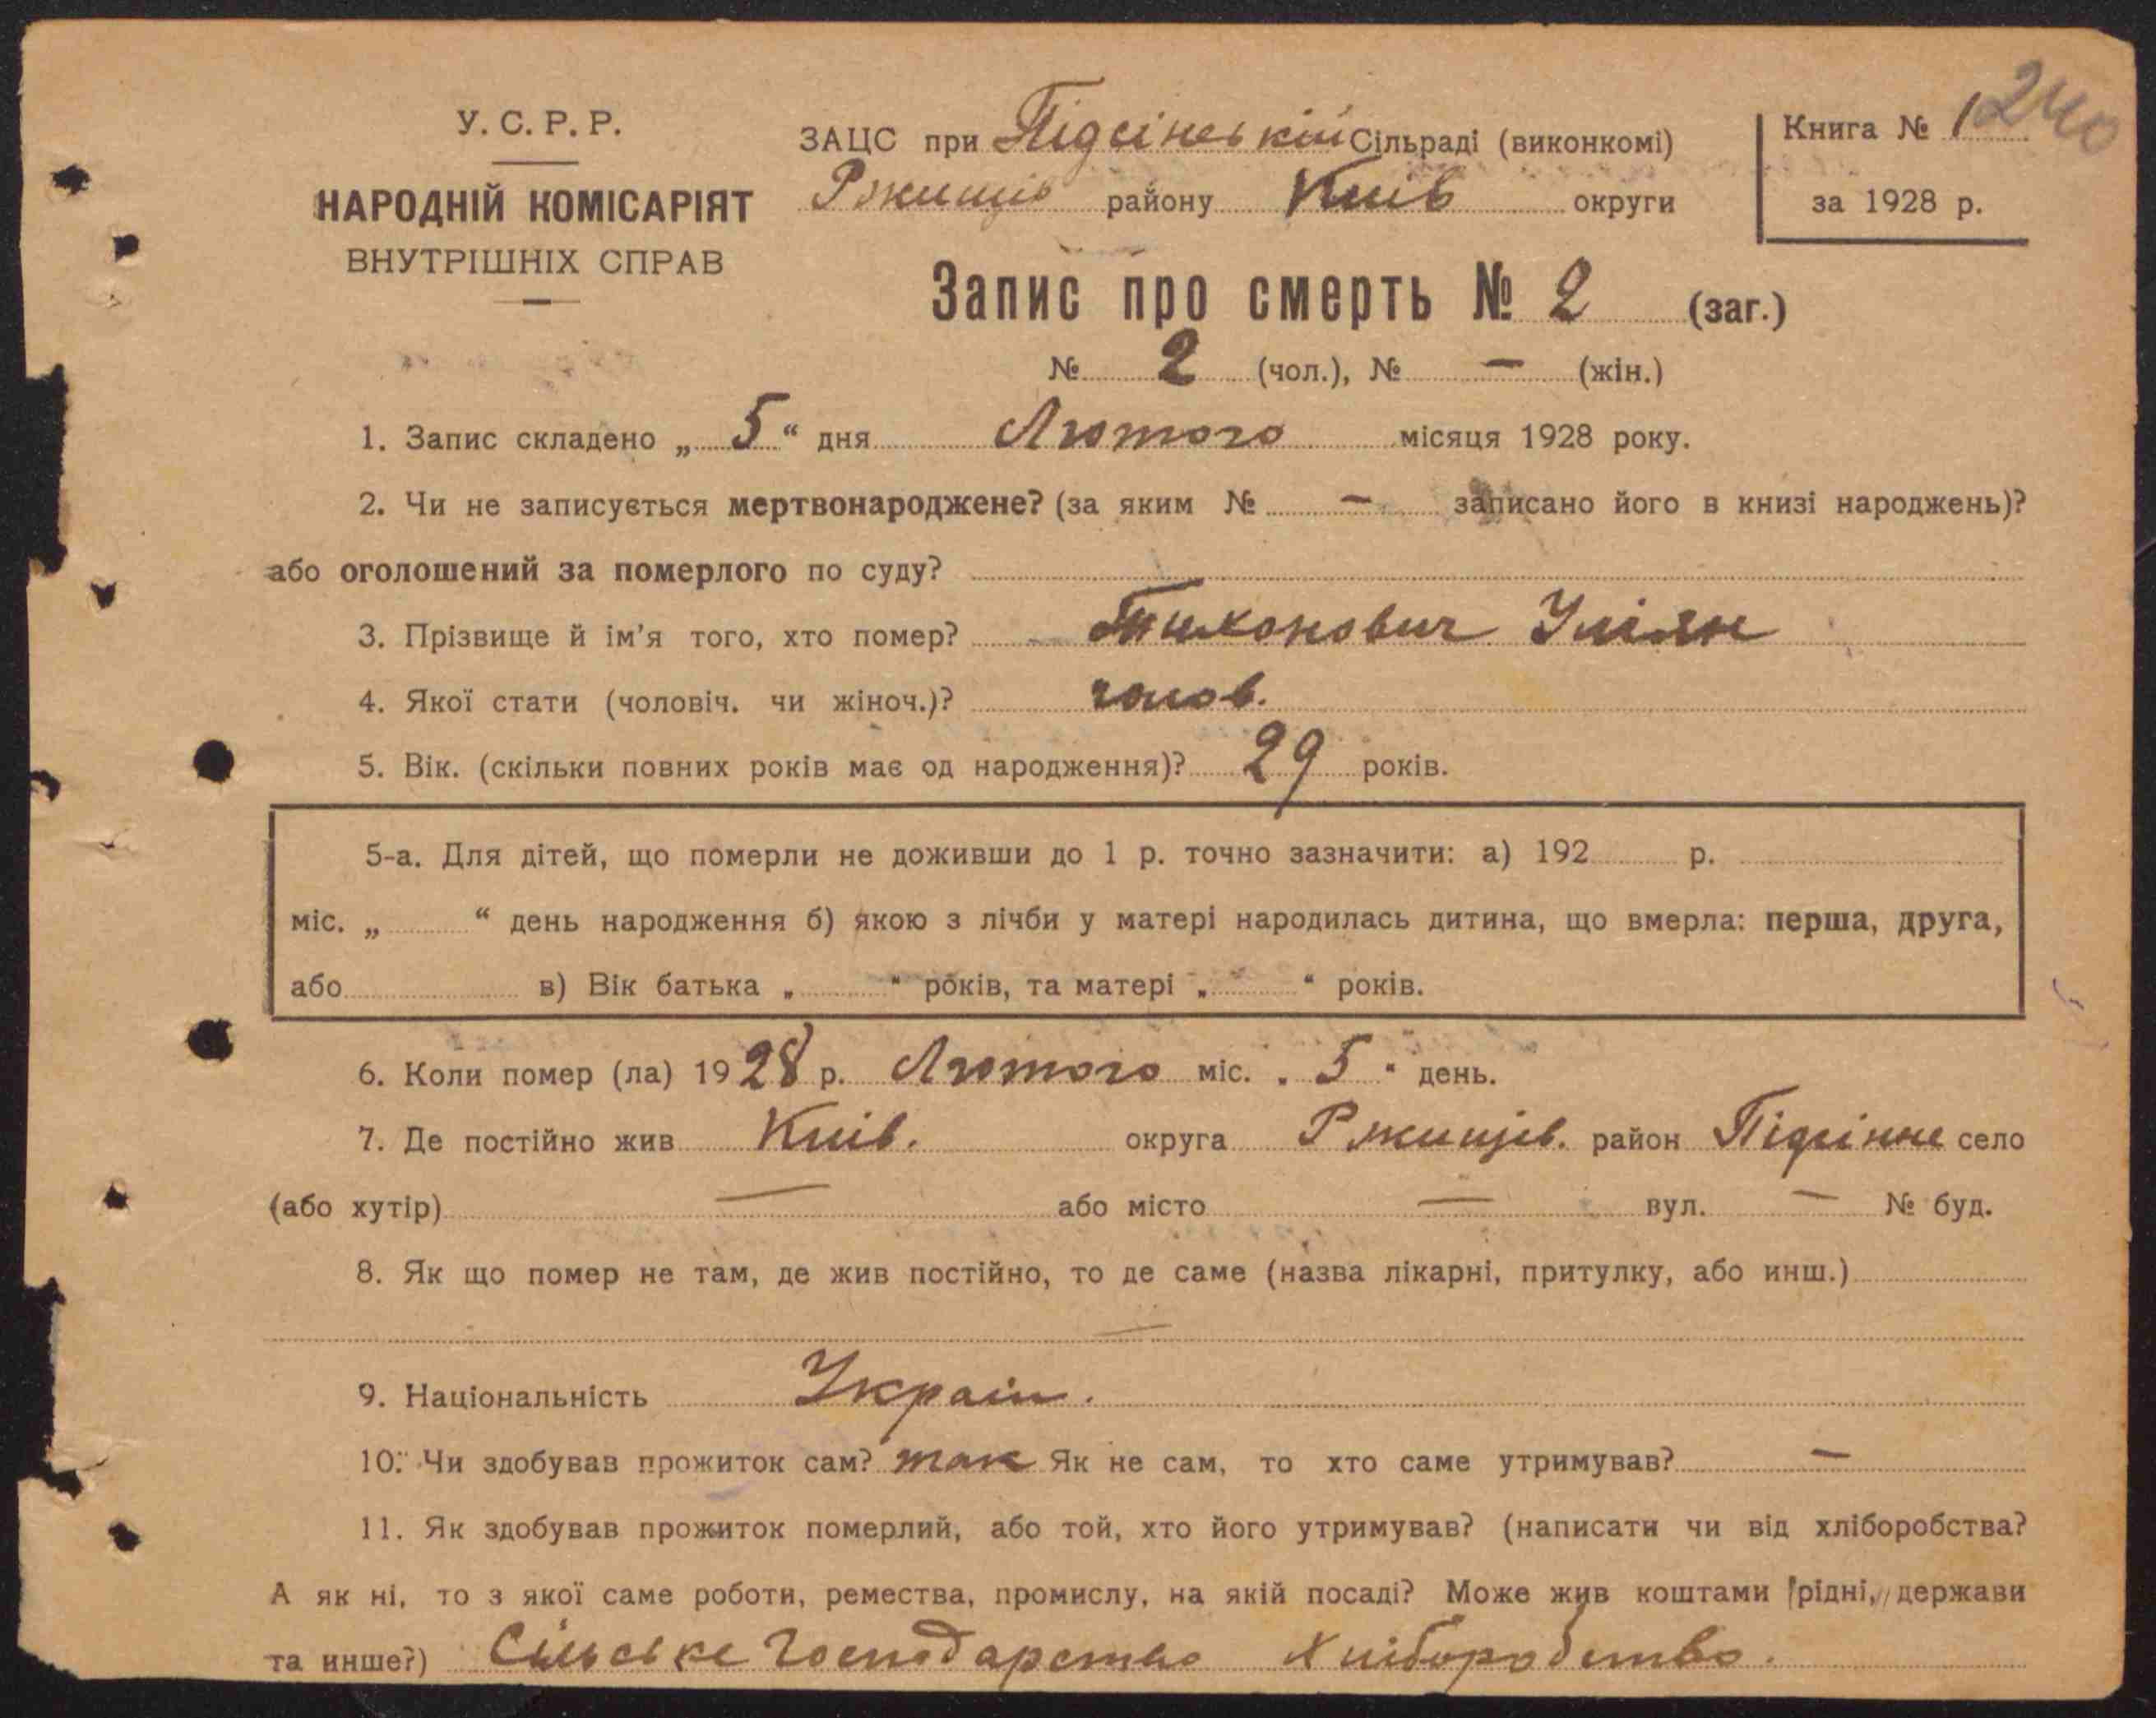 240
У. С. Р. Р.
НАРОДНІЙ КОМІСАРІЯТ
ВНУТРІШНІХ СПРАВ
ЗАЦС при Підсінській Сільраді (виконкомі)
Ржищів району Київ округи
Книга № 1
за 1928 р.
Запис про смерть № 2 (заг.)
№ 2 (чол.), № — (жін.)
1. Запис складено „ 5 “ дня Лютого місяця 1928 року.
2. Чи не записується мертвонароджене? (за яким № — записано його в книзі народжень)?
або оголошений за померлого по суду?
3. Прізвище й ім'я того, хто помер? Тихонович Уліян
4. Якої стати (чоловіч. чи жіноч.)? чолов.
5. Вік. (скільки повних років має од народження)? 29 років.
5-а. Для дітей, що померли не доживши до 1 р. точно зазначити: а) 192 р.
міс. „ “ день народження б) якою з лічби у матері народилась дитина, що вмерла: перша, друга,
або в) Вік батька „ “ років, та матері „ “ років.
6. Коли помер (ла) 1928 р. Лютого міс. „ 5 “ день.
7. Де постійно жив Київ. округа Ржищів. район Підсінне село
(або хутір) — або місто — вул. — № буд.
8. Як що помер не там, де жив постійно, то де саме (назва лікарні, притулку, або инш.)
—
9. Національність Україн.
10. Чи здобував прожиток сам? так Як не сам, то хто саме утримував? —
11. Як здобував прожиток померлий, або той, хто його утримував? (написати чи від хліборобства?
А як ні, то з якої саме роботи, ремества, промислу, на якій посаді? Може жив коштами рідні, держави
та инше?) Сільське Господарство Хліборобство.